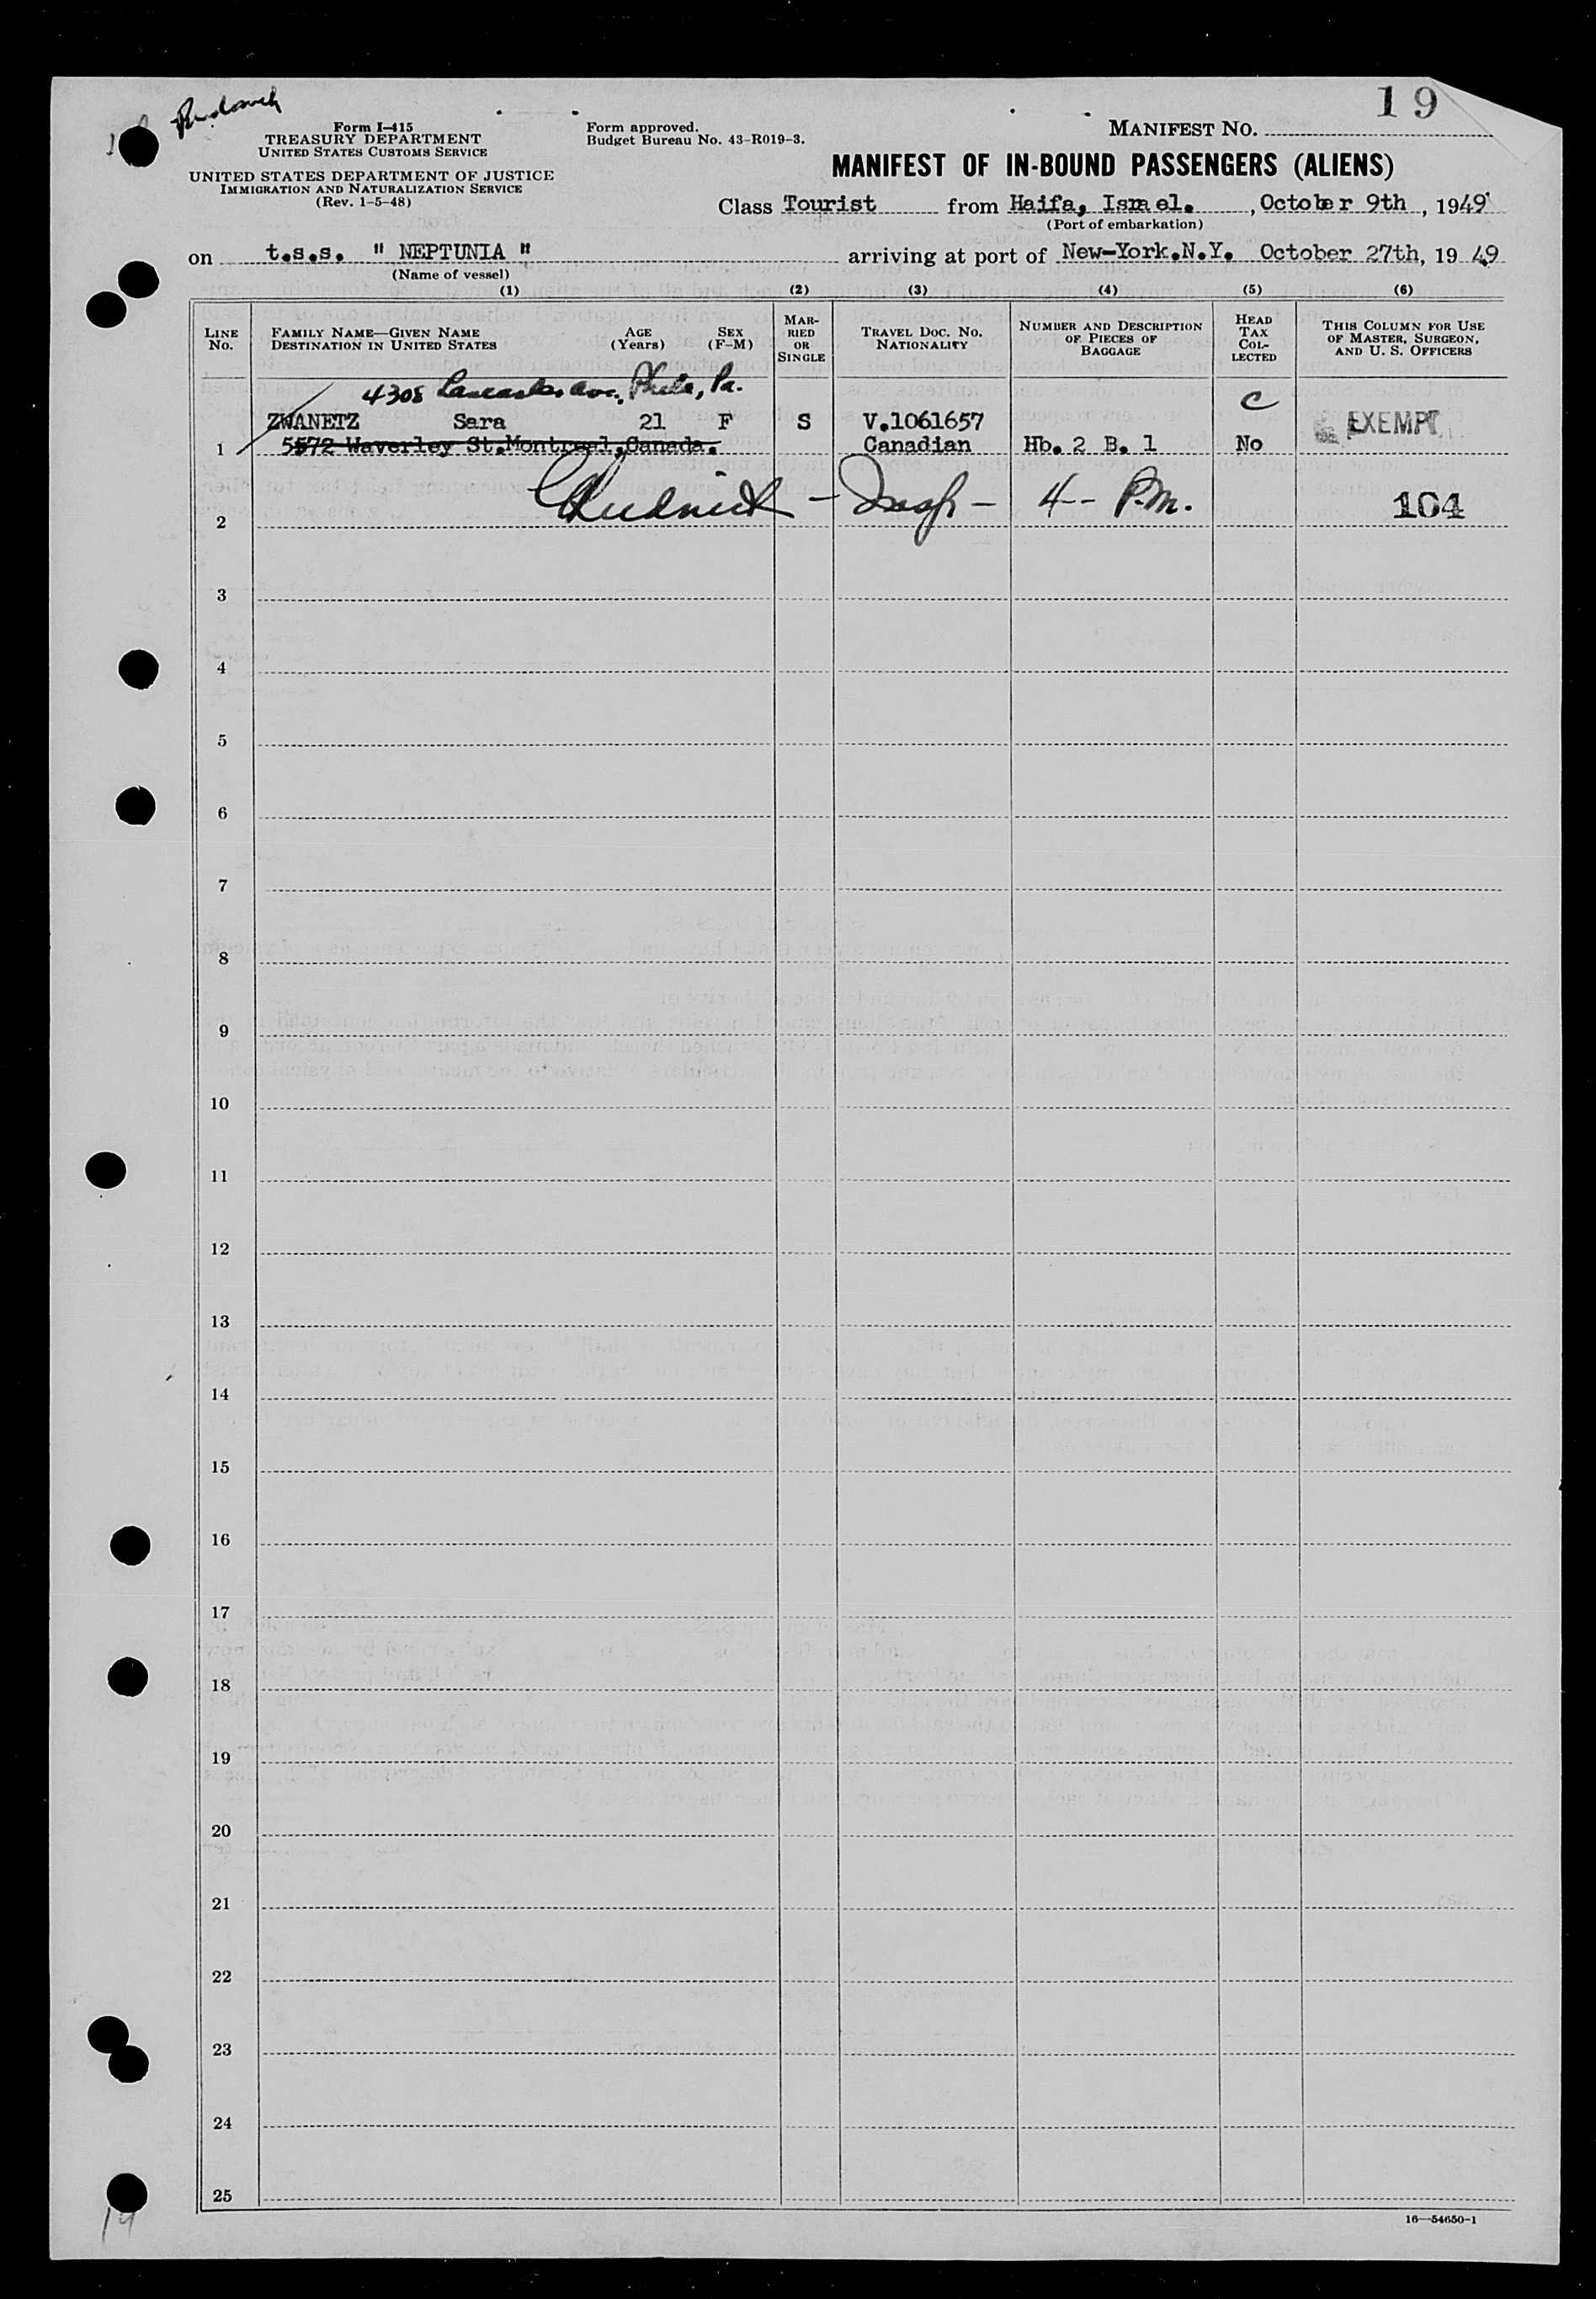 19
Form I-415
TREASURY DEPARTMENT
UNITED STATES CUSTOMS SERVICE
UNITED STATES DEPARTMENT OF JUSTICE
IMMIGRATION AND NATURALIZATION SERVICE
(Rev. 1-5-48)
Form approved.
Budget Bureau No. 43-R019-3.
MANIFEST NO.
MANIFEST OF IN-BOUND PASSENGERS (ALIENS)
Class Tourist from Haifa, Israel. , October 9th , 1949
(Port of embarkation)
on t.s.s. " NEPTUNIA " arriving at port of New-York.N.Y. October 27th, 19 49
(Name of vessel)
(1) (2) (3) (4) (5) (6)
LINE No. FAMILY NAME—GIVEN NAME DESTINATION IN UNITED STATES AGE (Years) SEX (F-M) MARRIED OR SINGLE TRAVEL DOC. NO. NATIONALITY NUMBER AND DESCRIPTION OF PIECES OF BAGGAGE HEAD TAX COLLECTED THIS COLUMN FOR USE OF MASTER, SURGEON, AND U. S. OFFICERS
4308 Lancaster Ave. Phila, Pa. C
ZWANETZ Sara 21 F S V.1061657 EXEMPT
1 5572 Waverley St.Montreal,Canada. Canadian Hb. 2 B. 1 No
2 - Insp - 4 - P.M. 104
3
4
5
6
7
8
9
10
11
12
13
14
15
16
17
18
19
20
21
22
23
24
25
16—54650-1
19